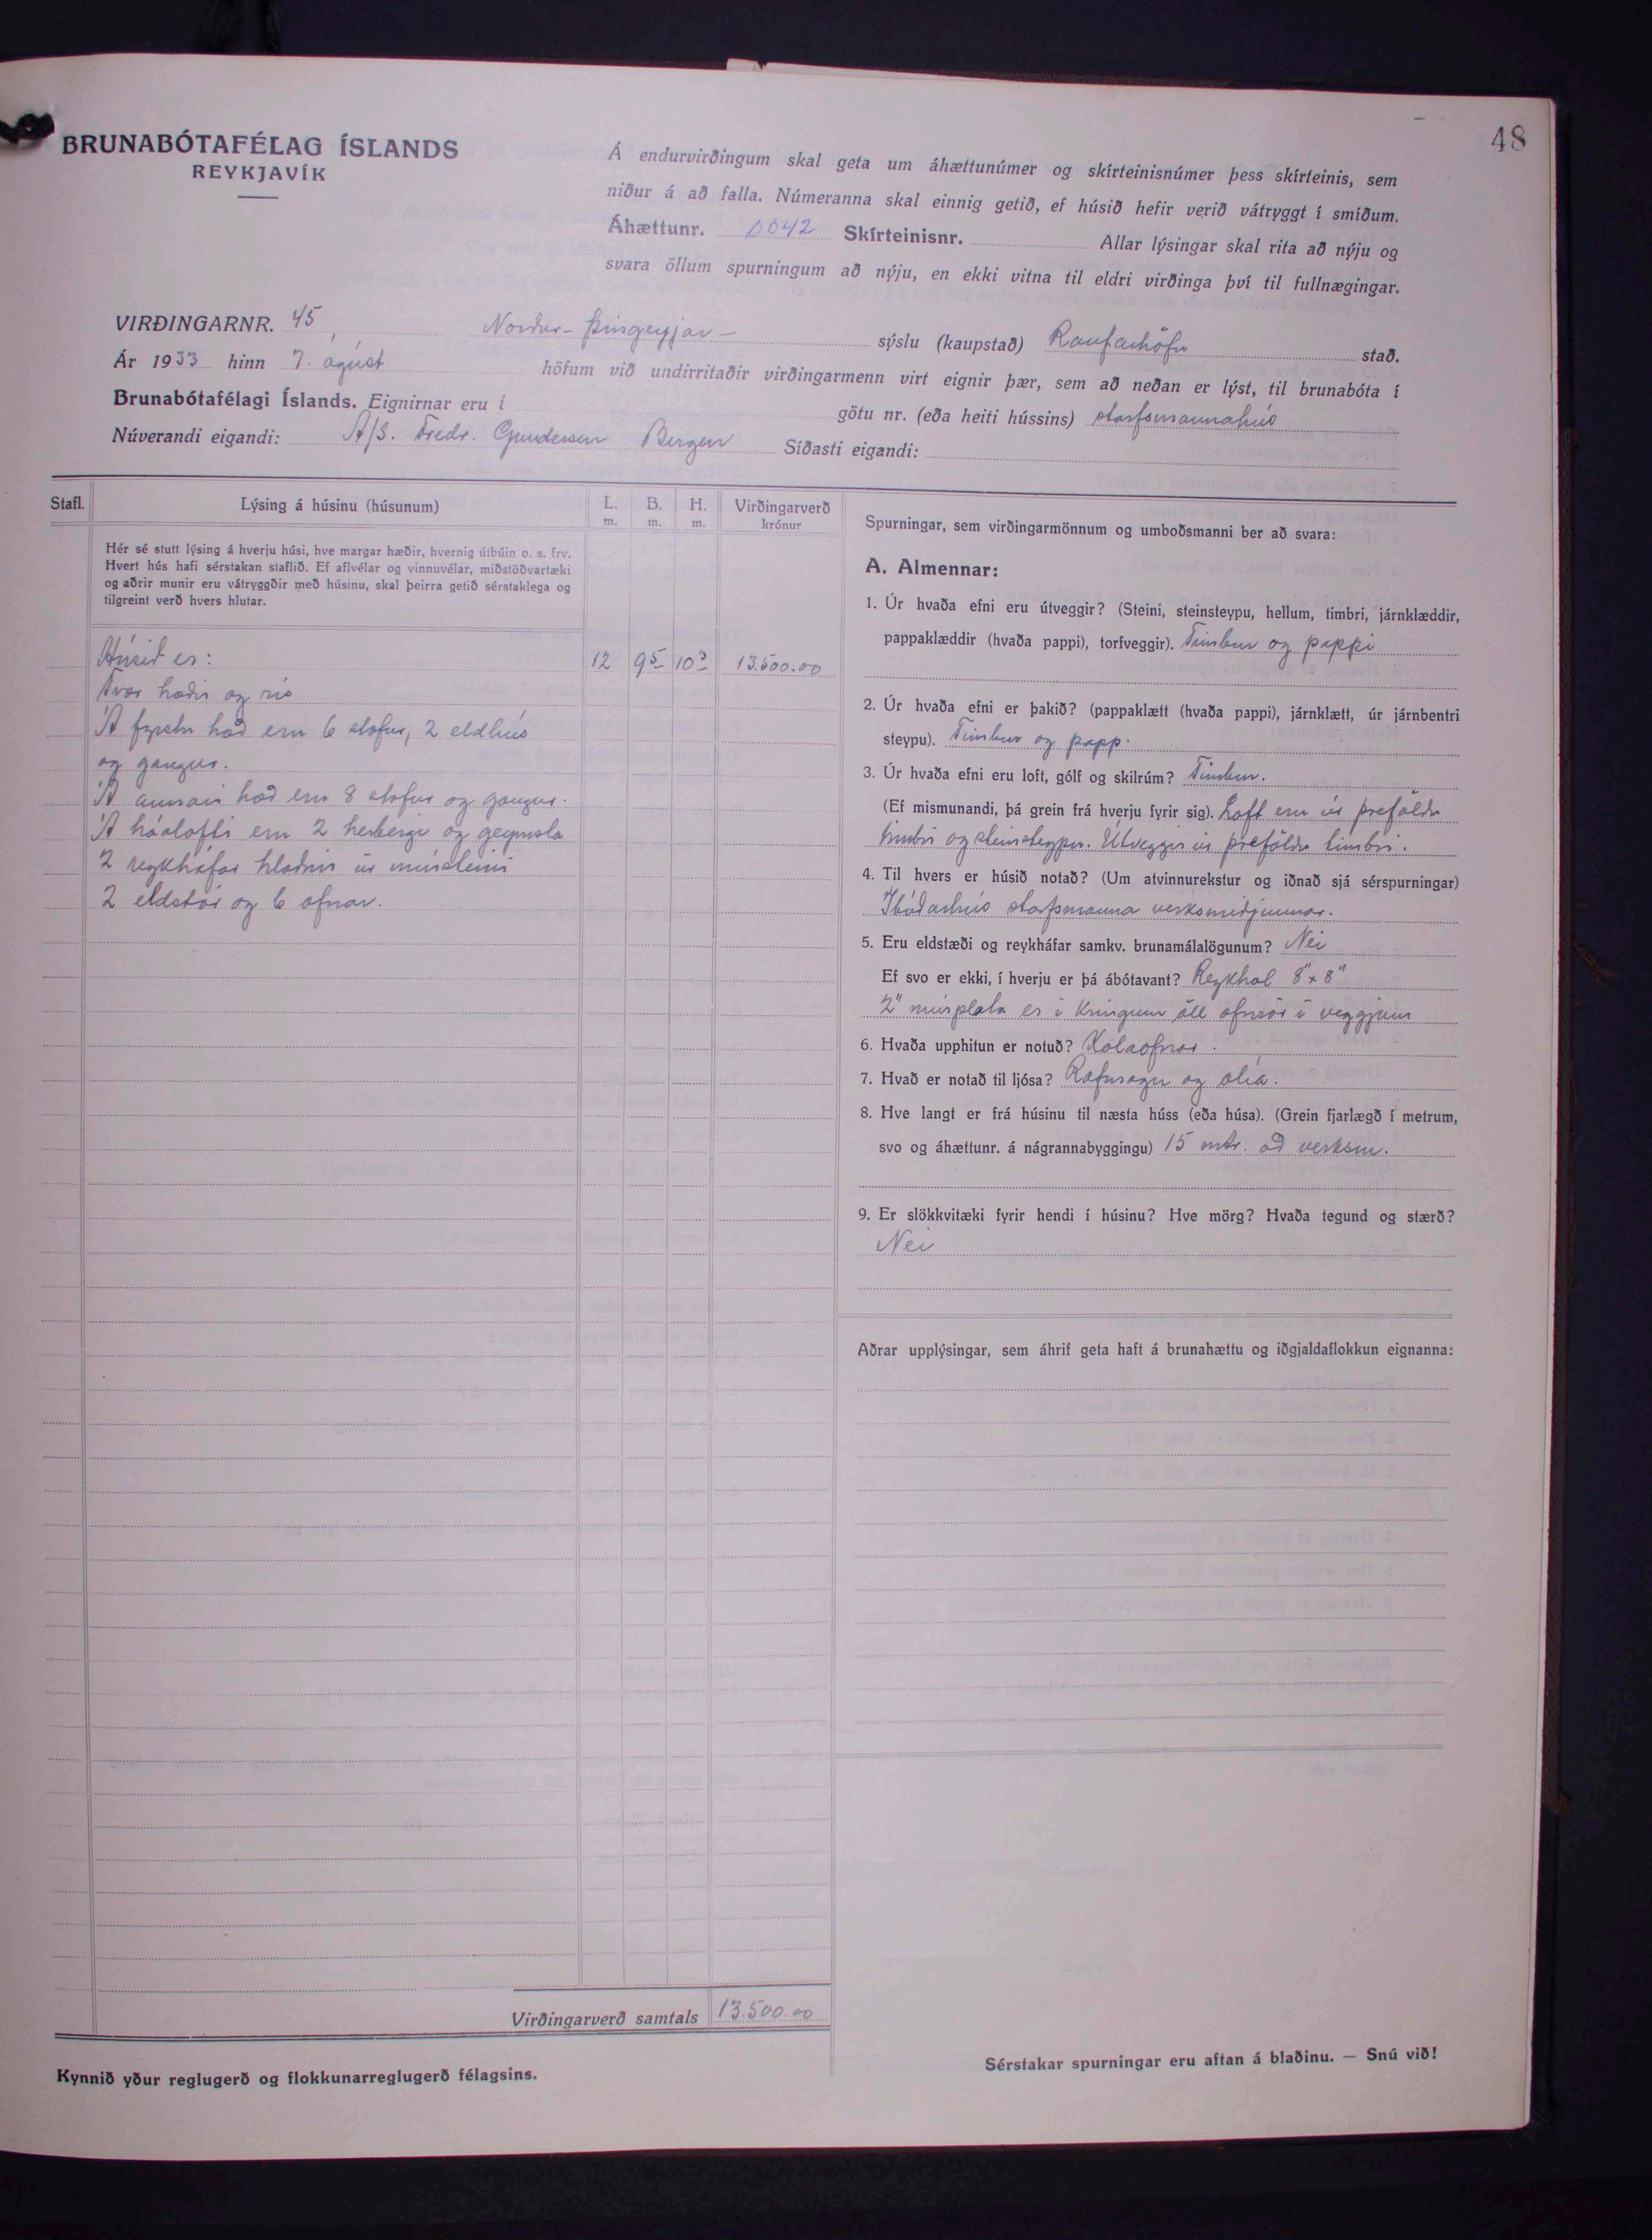 48
BRUNABÓTAFÉLAG ÍSLANDS
REYKJAVÍK
Á endurvirðingum skal geta um áhættunúmer og skírteinisnúmer þess skírteinis, sem
niður á að falla. Númeranna skal einnig getið, ef húsið hefir verið vátryggt í smíðum.
Áhættunr. 0042 Skírteinisnr. Allar lýsingar skal rita að nýju og
svara öllum spurningum að nýju, en ekki vitna til eldri virðinga því til fullnægingar.
VIRÐINGARNR. 45 Norður-Þingeyjar- sýslu (kaupstað) Raufarhöfn stað.
Ár 1933 hinn 7. ágúst höfum við undirritaðir virðingarmenn virt eignir þær, sem að neðan er lýst, til brunabóta í
Brunabótafélagi Íslands. Eignirnar eru í götu nr. (eða heiti hússins) starfsmannahús
Núverandi eigandi: A/S. Fredr. Gundersen Bergen Síðasti eigandi:
Stafl. Lýsing á húsinu (húsunum) L. m. B. m. H. m. Virðingarverð krónur
Hér sé stutt lýsing á hverju húsi, hve margar hæðir, hvernig útbúin o. s. frv.
Hvert hús hafi sérstakan staflið. Ef aflvélar og vinnuvélar, miðstöðvartæki
og aðrir munir eru vátryggðir með húsinu, skal þeirra getið sérstaklega og
tilgreint verð hvers hlutar.
Húsið er: 12 9⁵ 10³ 13.500.00
Tvær hæðir og ris
Á fyrstu hæð eru 6 stofur, 2 eldhús
og gangur.
Á annari hæð eru 8 stofur og gangur.
Á háalofti eru 2 herbergi og geymsla
2 reykháfar hlaðnir úr múrsteini
2 eldstór og 6 ofnar.
Virðingarverð samtals 13.500.00
Kynnið yður reglugerð og flokkunarreglugerð félagsins.
Spurningar, sem virðingarmönnum og umboðsmanni ber að svara:
A. Almennar:
1. Úr hvaða efni eru útveggir? (Steini, steinsteypu, hellum, timbri, járnklæddir,
pappaklæddir (hvaða pappi), torfveggir). Timbur og pappi
2. Úr hvaða efni er þakið? (pappaklætt (hvaða pappi), járnklætt, úr járnbentri
steypu). Timbur og papp.
3. Úr hvaða efni eru loft, gólf og skilrúm? Timbur.
(Ef mismunandi, þá grein frá hverju fyrir sig). Loft eru úr þreföldu
timbri og steinsteypu. Útveggir úr þreföldu timbri.
4. Til hvers er húsið notað? (Um atvinnurekstur og iðnað sjá sérspurningar)
Íbúðarhús stafsmanna verksmiðjunnar.
5. Eru eldstæði og reykháfar samkv. brunamálalögunum? Nei
Ef svo er ekki, í hverju er þá ábótavant? Reykhol 8"x8"
2" múrplata er í kringum öll ofnrör í veggjum
6. Hvaða upphitun er notuð? Kolaofnar.
7. Hvað er notað til ljósa? Rafmagn og olía.
8. Hve langt er frá húsinu til næsta húss (eða húsa). (Grein fjarlægð í metrum,
svo og áhættunr. á nágrannabyggingu) 15 mtr. að verksm.
9. Er slökkvitæki fyrir hendi í húsinu? Hve mörg? Hvaða tegund og stærð?
Nei
Aðrar upplýsingar, sem áhrif geta haft á brunahættu og iðgjaldaflokkun eignanna:
Sérstakar spurningar eru aftan á blaðinu. — Snú við!